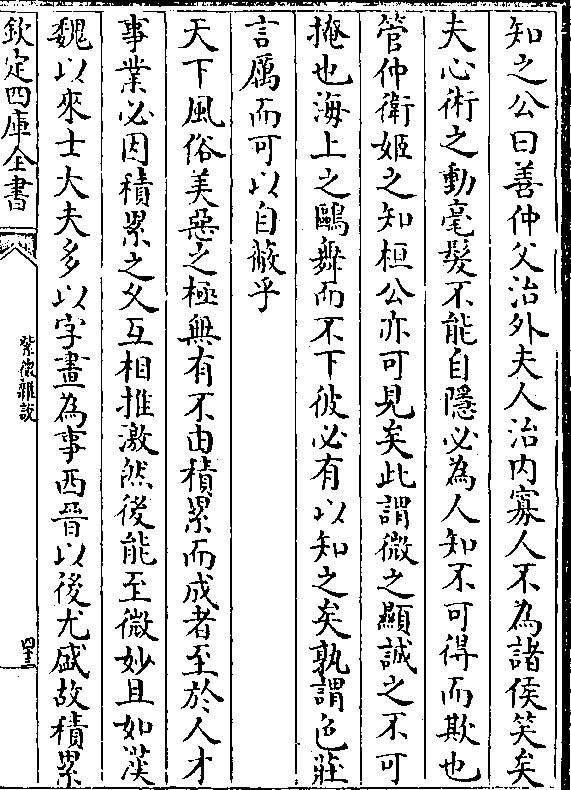 知之公曰善仲父治外夫人治内寡人不為諸侯笑矣
夫心術之動毫髮不能自隱必為人知不可得而欺也
管仲衛姬之知桓公亦可見矣此謂微之顯誠之不可
掩也海上之鷗舞而不下彼必有以知之矣孰謂色莊
言厲而可以自蔽乎
天下風俗美惡之極無有不由積累而成者至於人才
事業必因積累之久互相推激然後能至微妙且如漢
魏以來士大夫多以字畫為事西晉以後尤盛故積累
欽定四庫全書
紫微雜說
四十三